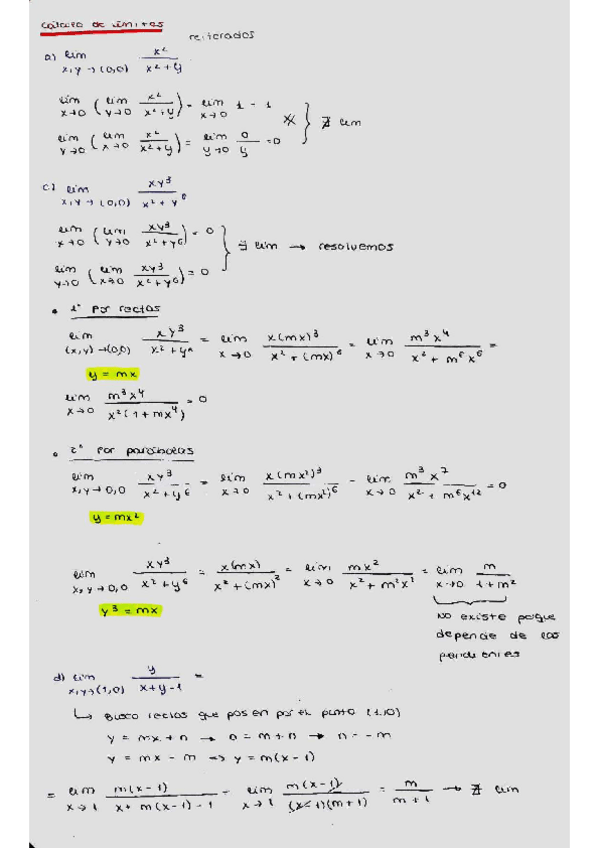 Cálculo de límites reiterados
a) lim x,y→(0,0) x²/(x²+y)
lim x→0 ( lim y→0 x²/(x²+y) ) = lim x→0 1 = 1
lim y→0 ( lim x→0 x²/(x²+y) ) = lim y→0 0/y = 0 } ∄ lim
c) lim x,y→(0,0) xy³/(x²+y⁶)
lim x→0 ( lim y→0 xy³/(x²+y⁶) ) = 0
lim y→0 ( lim x→0 xy³/(x²+y⁶) ) = 0 } ∃ lim → resolvemos
• 1º Por rectas
lim (x,y)→(0,0) xy³/(x²+y⁶) = lim x→0 x(mx)³/(x²+(mx)⁶) = lim x→0 m³x⁴/(x²+m⁶x⁶) =
y = mx
lim x→0 m³x⁴/(x²(1+mx⁴)) = 0
• 2º Por parábolas
lim x,y→0,0 xy³/(x²+y⁶) = lim x→0 x(mx²)³/(x²+(mx²)⁶) = lim x→0 m³x⁷/(x²+m⁶x¹²) = 0
y = mx²
lim x,y→0,0 xy³/(x²+y⁶) = x(mx)/(x²+(mx)²) = lim x→0 mx²/(x²+m²x²) = lim x→0 m/(1+m²)
y³ = mx
No existe porque
depende de las
pendientes
d) lim x,y→(1,0) y/(x+y-1) =
↳ Busco rectas que pasen por el punto (1,0)
y = mx+n → 0 = m+n → n = -m
y = mx - m → y = m(x-1)
= lim x→1 m(x-1)/(x+m(x-1)-1) = lim x→1 m(x-1)/((x-1)(m+1)) = m/(m+1) → ∄ lim